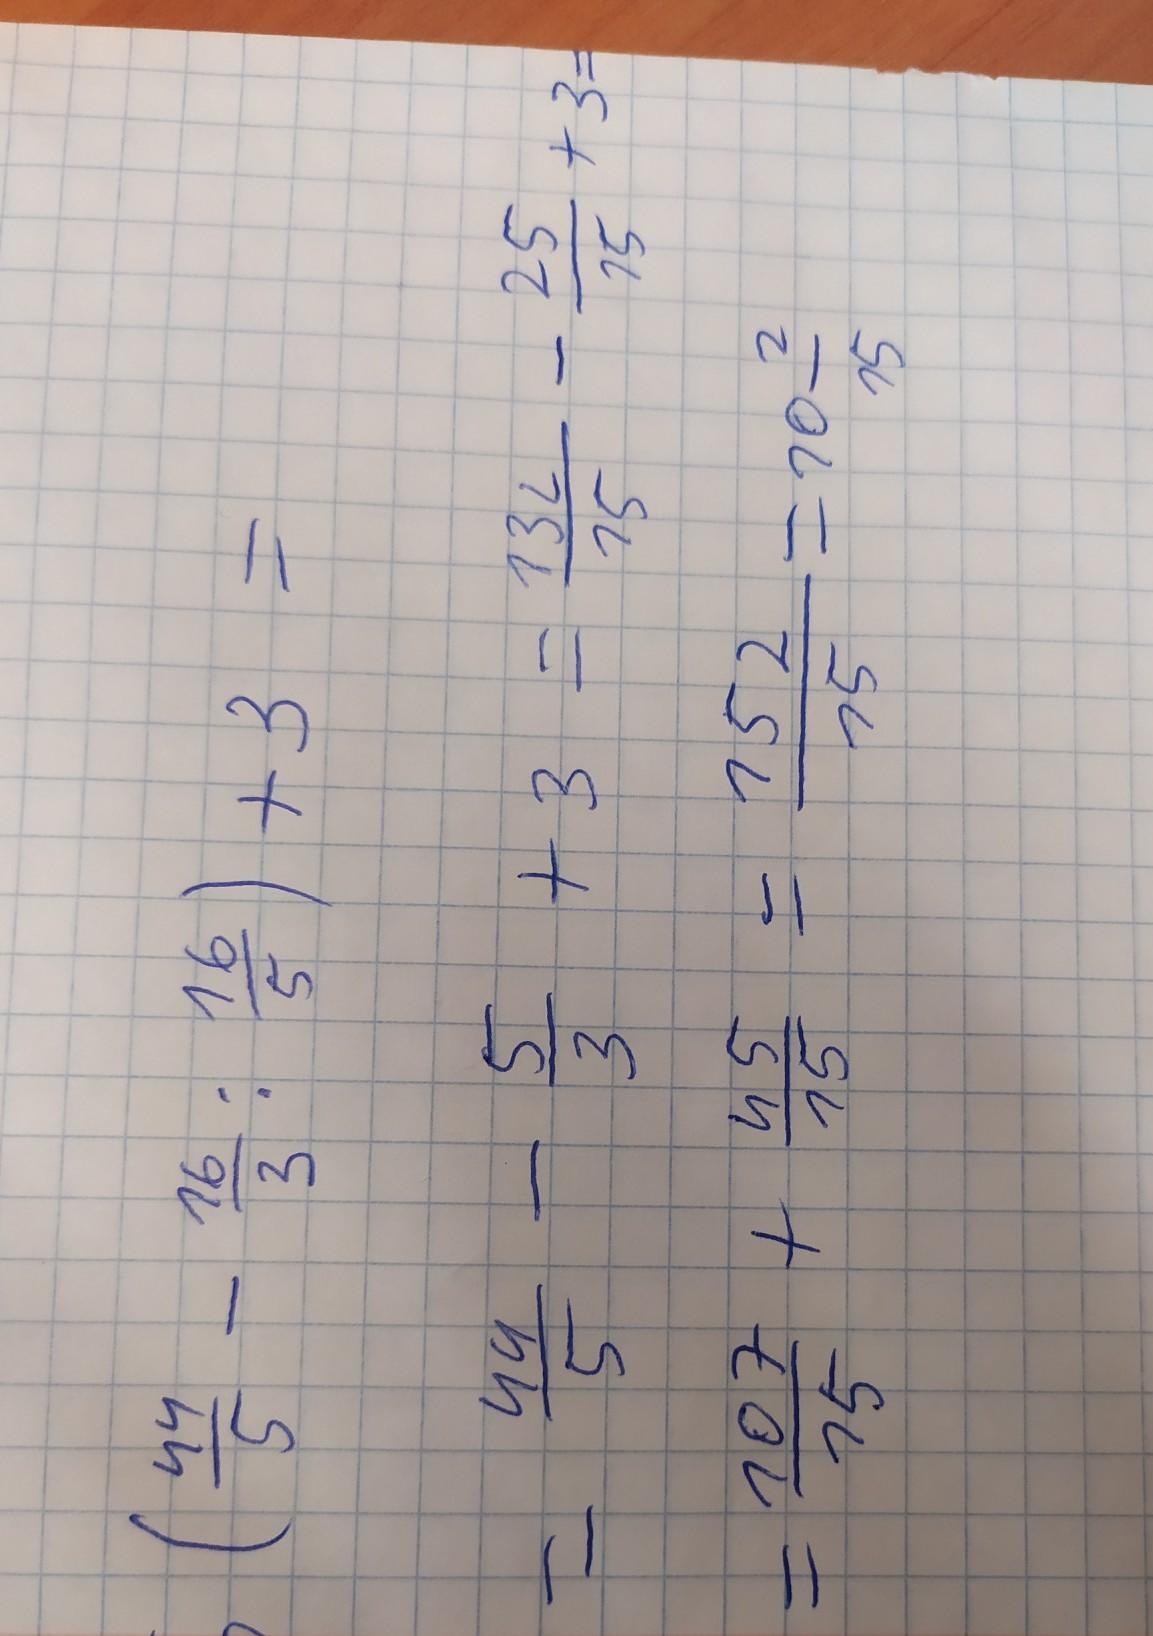 (44/5 - 16/3 : 16/5) + 3 =
= 44/5 - 5/3 + 3 = 132/15 - 25/15 + 3 =
= 107/15 + 45/15 = 152/15 = 10 2/15